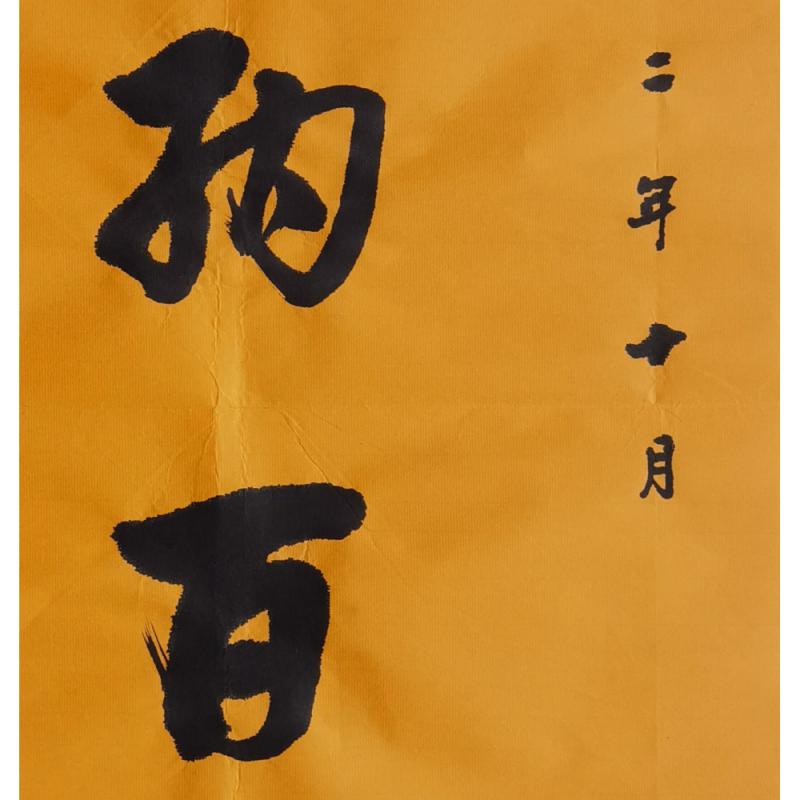 二年十月
纳百